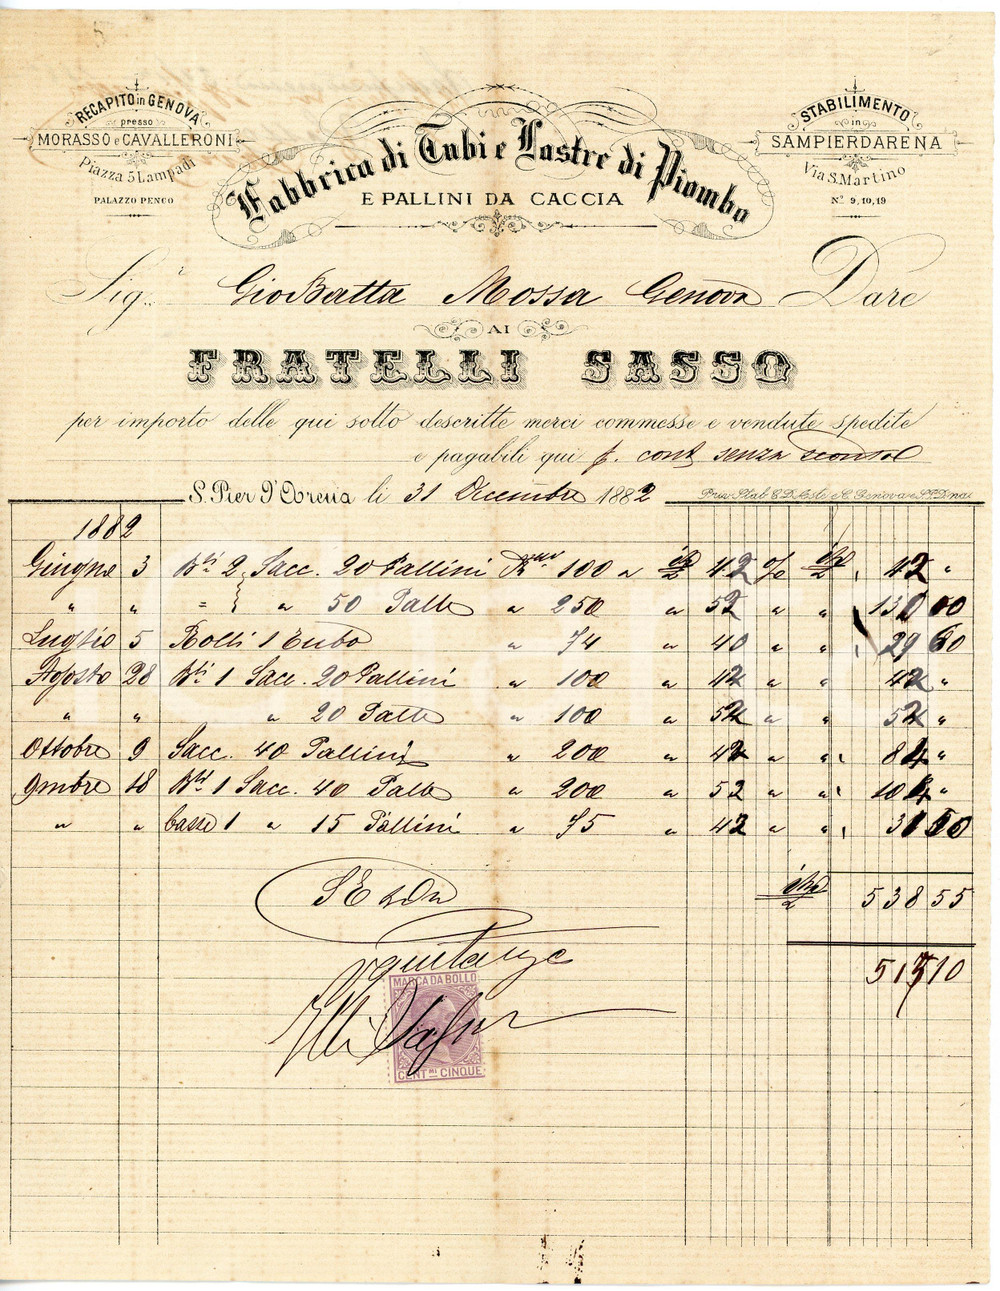 RECAPITO in GENOVA
presso
MORASSO e CAVALLERONI
Piazza 5 Lampadi
PALAZZO PENCO
Fabbrica di Tubi e Lastre di Piombo
E PALLINI DA CACCIA
STABILIMENTO
in
SAMPIERDARENA
Via S. Martino
No. 9, 10, 19
Sig.r Gio Batta Mossa Genova Dare
AI
FRATELLI SASSO
per importo delle qui sotto descritte merci commesse e vendute spedite
e pagabili qui p. cont senza sconto
S. Pier d'Arena li 31 Decembre 1882
1882
Giugno 3 Bti 2 Sacc. 20 Pallini 100 a 42 % 42 "
" " = " 50 Palle " 250 " 52 " " 130 00
Luglio 5 Rolli 1 Tubo " 74 " 40 " " 29 60
Agosto 28 Bti 1 Sacc. 20 Pallini " 100 " 42 " " 42 "
" " " 20 Palle " 100 " 52 " " 52 "
Ottobre 9 Sacc. 40 Pallini " 200 " 42 " " 84 "
9mbre 18 Bti 1 Sacc. 40 Palle " 200 " 52 " " 104 "
" " basse 1 " 15 Pallini " 75 " 42 " " 31 50
S E
538 55
quitanza
513 10
MARCA DA BOLLO
CENT.MI CINQUE